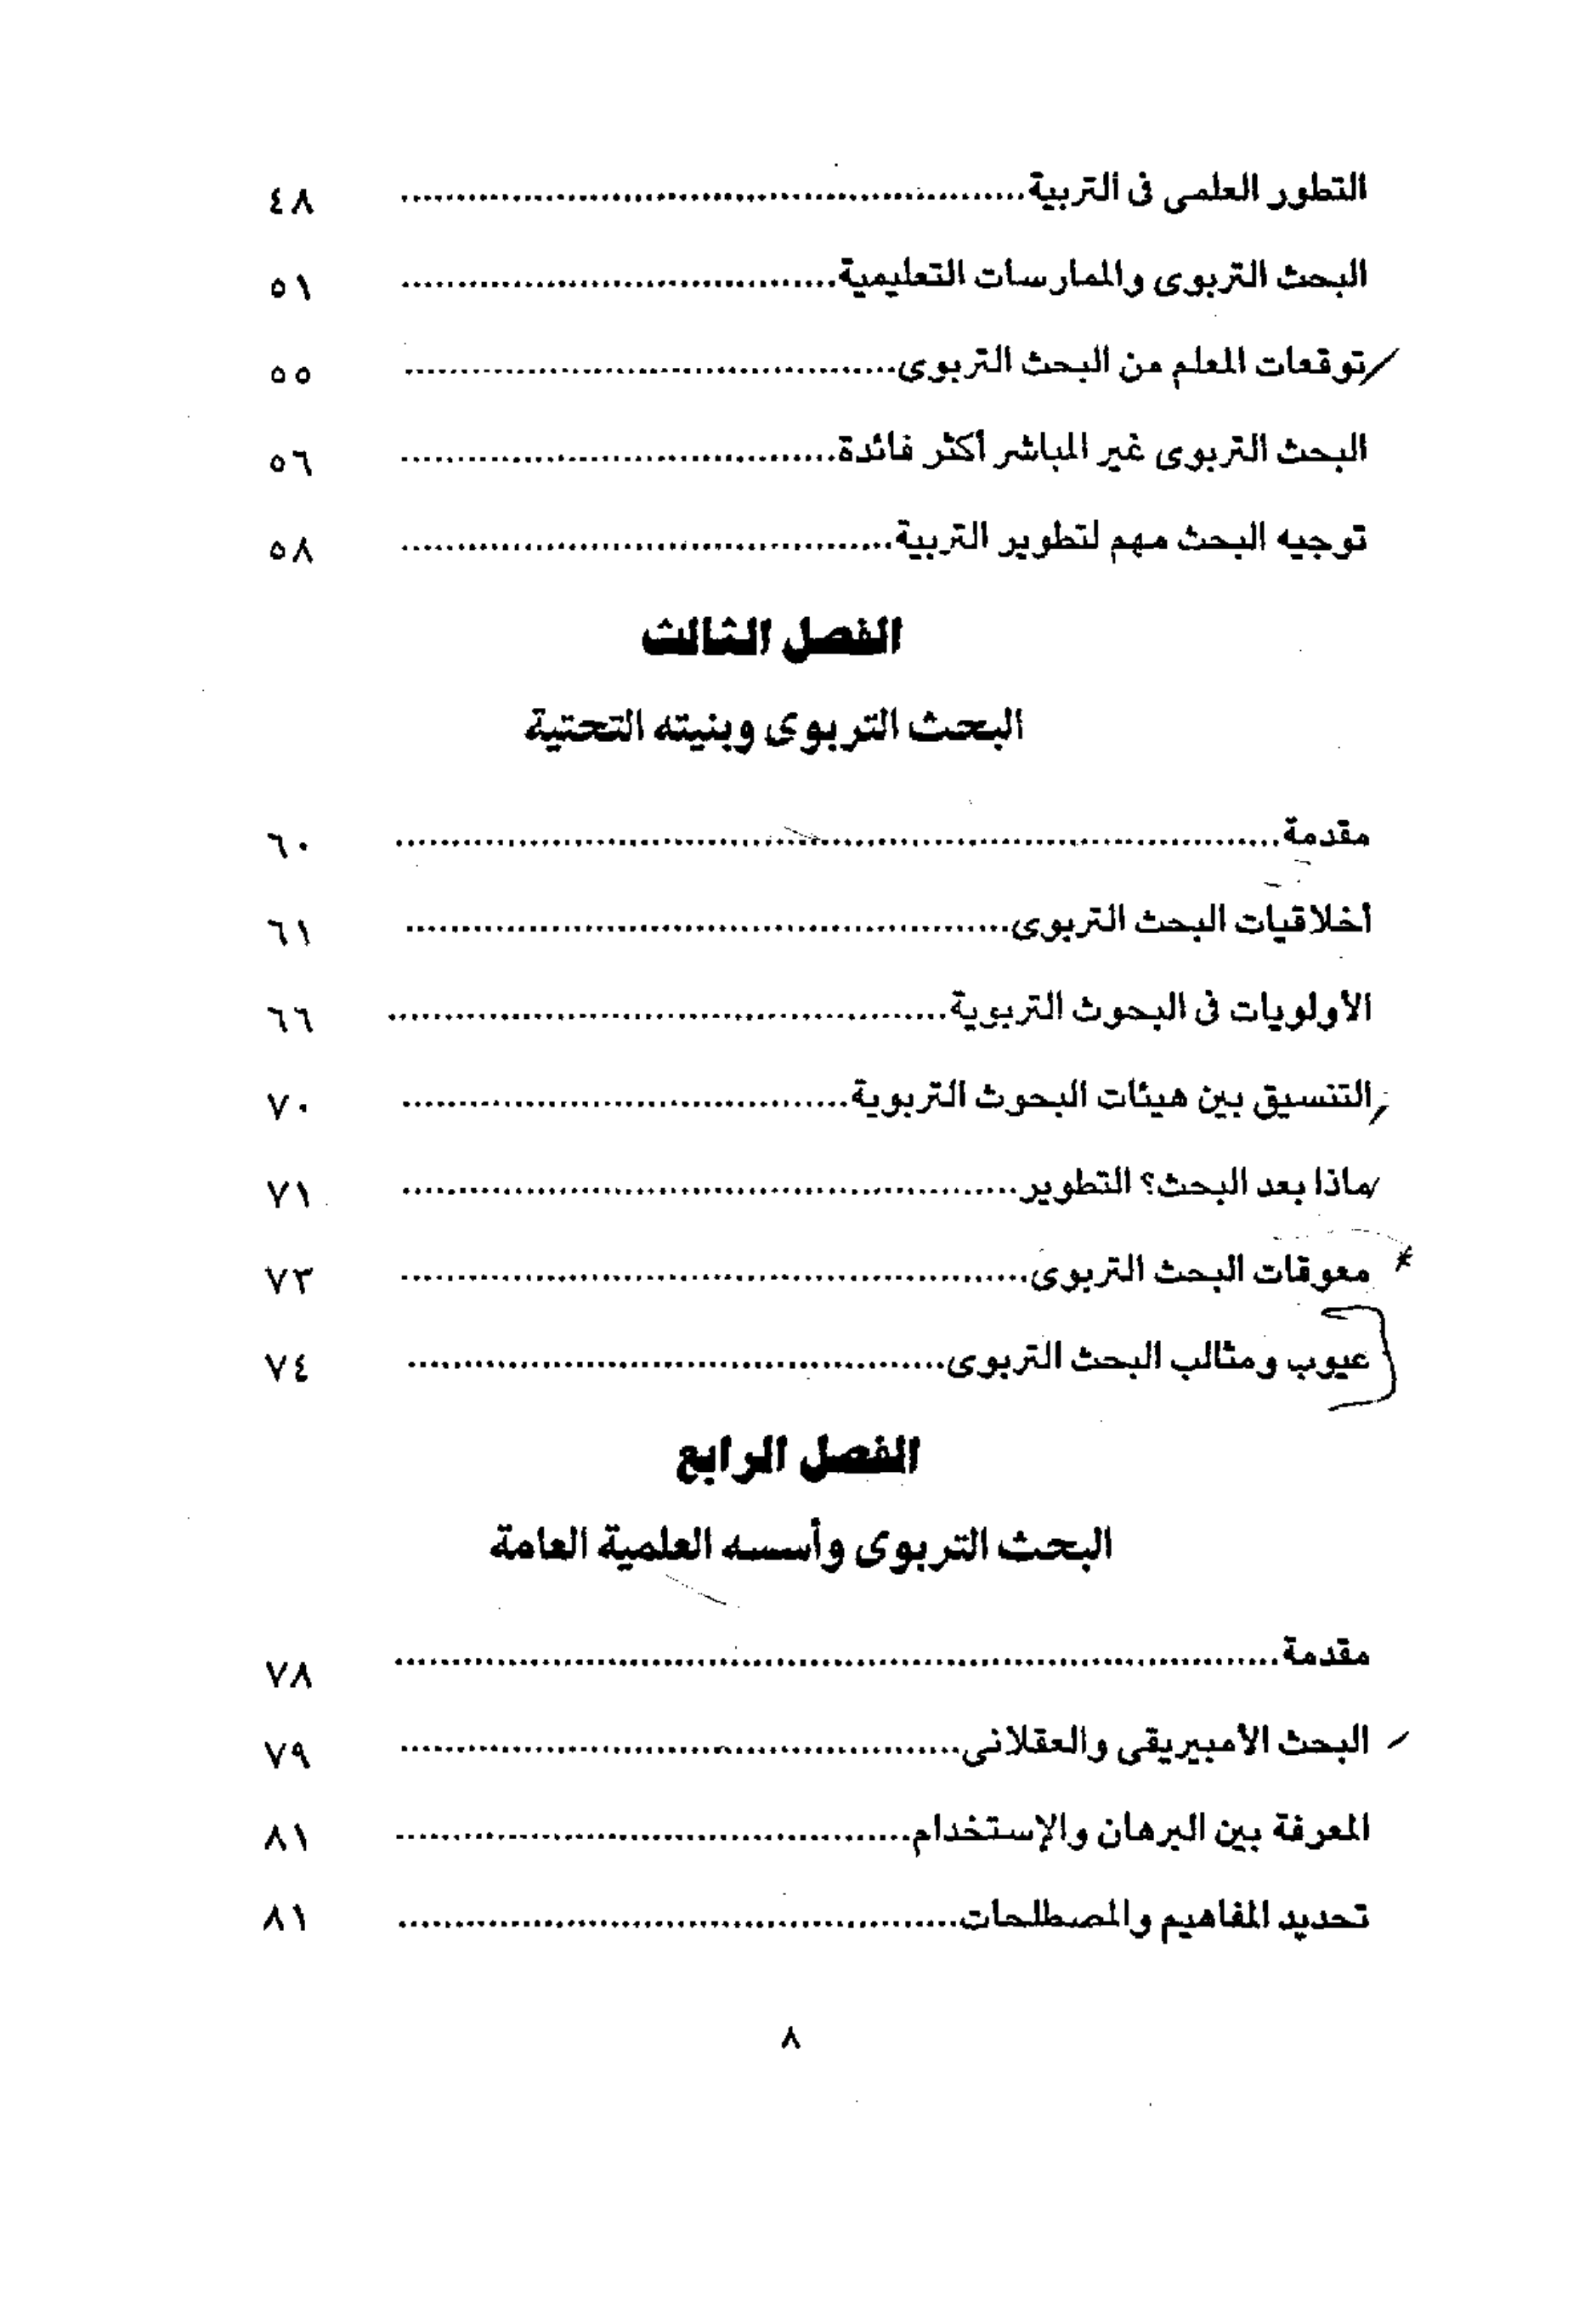 التطور العلمى فى التربية ........................................ ٤٨
البحث التربوى والممارسات التعليمية ........................................ ٥١
توقعات المعلم من البحث التربوى ........................................ ٥٥
البحث التربوى غير المباشر أكثر فائدة ........................................ ٥٦
توجيه البحث مهم لتطوير التربية ........................................ ٥٨
الفصل الثالث
البحث التربوى وبنيته التحتية
مقدمة ........................................ ٦٠
أخلاقيات البحث التربوى ........................................ ٦١
الأولويات فى البحوث التربوية ........................................ ٦٦
التنسيق بين هيئات البحوث التربوية ........................................ ٧٠
ماذا بعد البحث؟ التطوير ........................................ ٧١
* معوقات البحث التربوى ........................................ ٧٣
عيوب ومثالب البحث التربوى ........................................ ٧٤
الفصل الرابع
البحث التربوى وأسسه العلمية العامة
مقدمة ........................................ ٧٨
البحث الأمبيريقى والعقلانى ........................................ ٧٩
المعرفة بين البرهان والإستخدام ........................................ ٨١
تحديد المفاهيم والمصطلحات ........................................ ٨١
٨